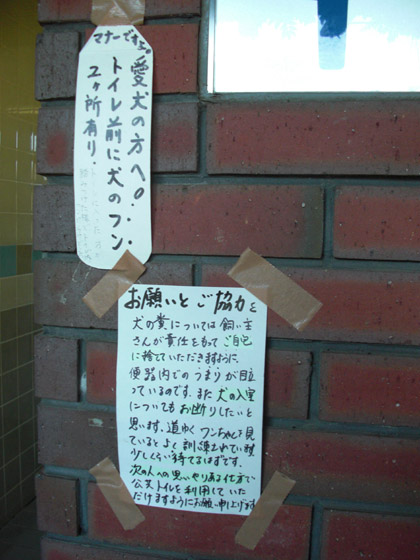 マナーですョ。
愛犬の方へ!
トイレ前に犬のフン
2ヶ所有り。
お願いとご協力を
犬の糞については飼い主
さんが責任をもってご自宅
に捨てていただきますように
便器内でのつまりが目立
っているのです。また犬の入室
についてもお断りしたいと
思います。道ゆくワンちゃんを見
ているとよく訓練されています
少しくらい待てるはずです。
次の人への思いやりある仕方で
公共トイレを利用していた
だけますようにお願い申上げます